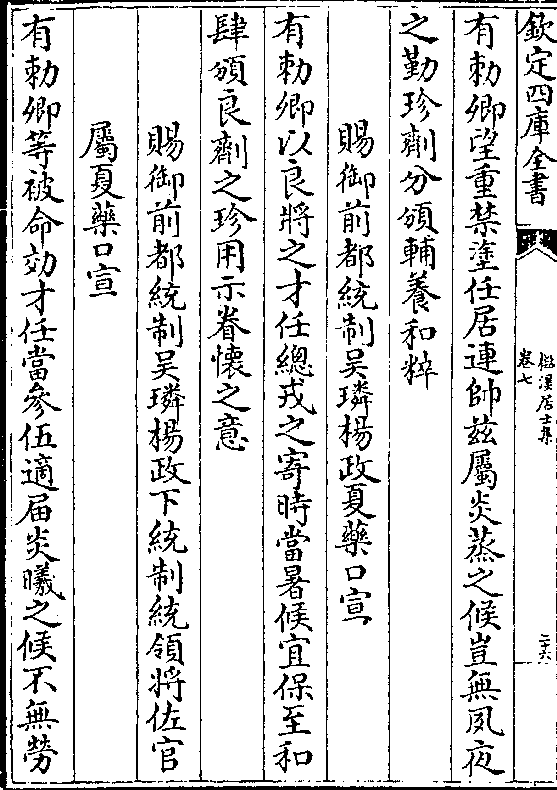 欽定四庫全書
卷七
二十六
有勅卿望重禁塗任居連帥兹屬炎蒸之候豈無夙夜
之勤珍劑分頒輔養和粹
賜御前都統制吴璘楊政夏藥口宣
有勅卿以良將之才任總戎之寄時當暑候宜保至和
肆頒良劑之珍用示眷懷之意
賜御前都統制吴璘楊政下統制統領將佐官
屬夏藥口宣
有勅卿等被命効才任當參伍適届炎曦之候不無勞